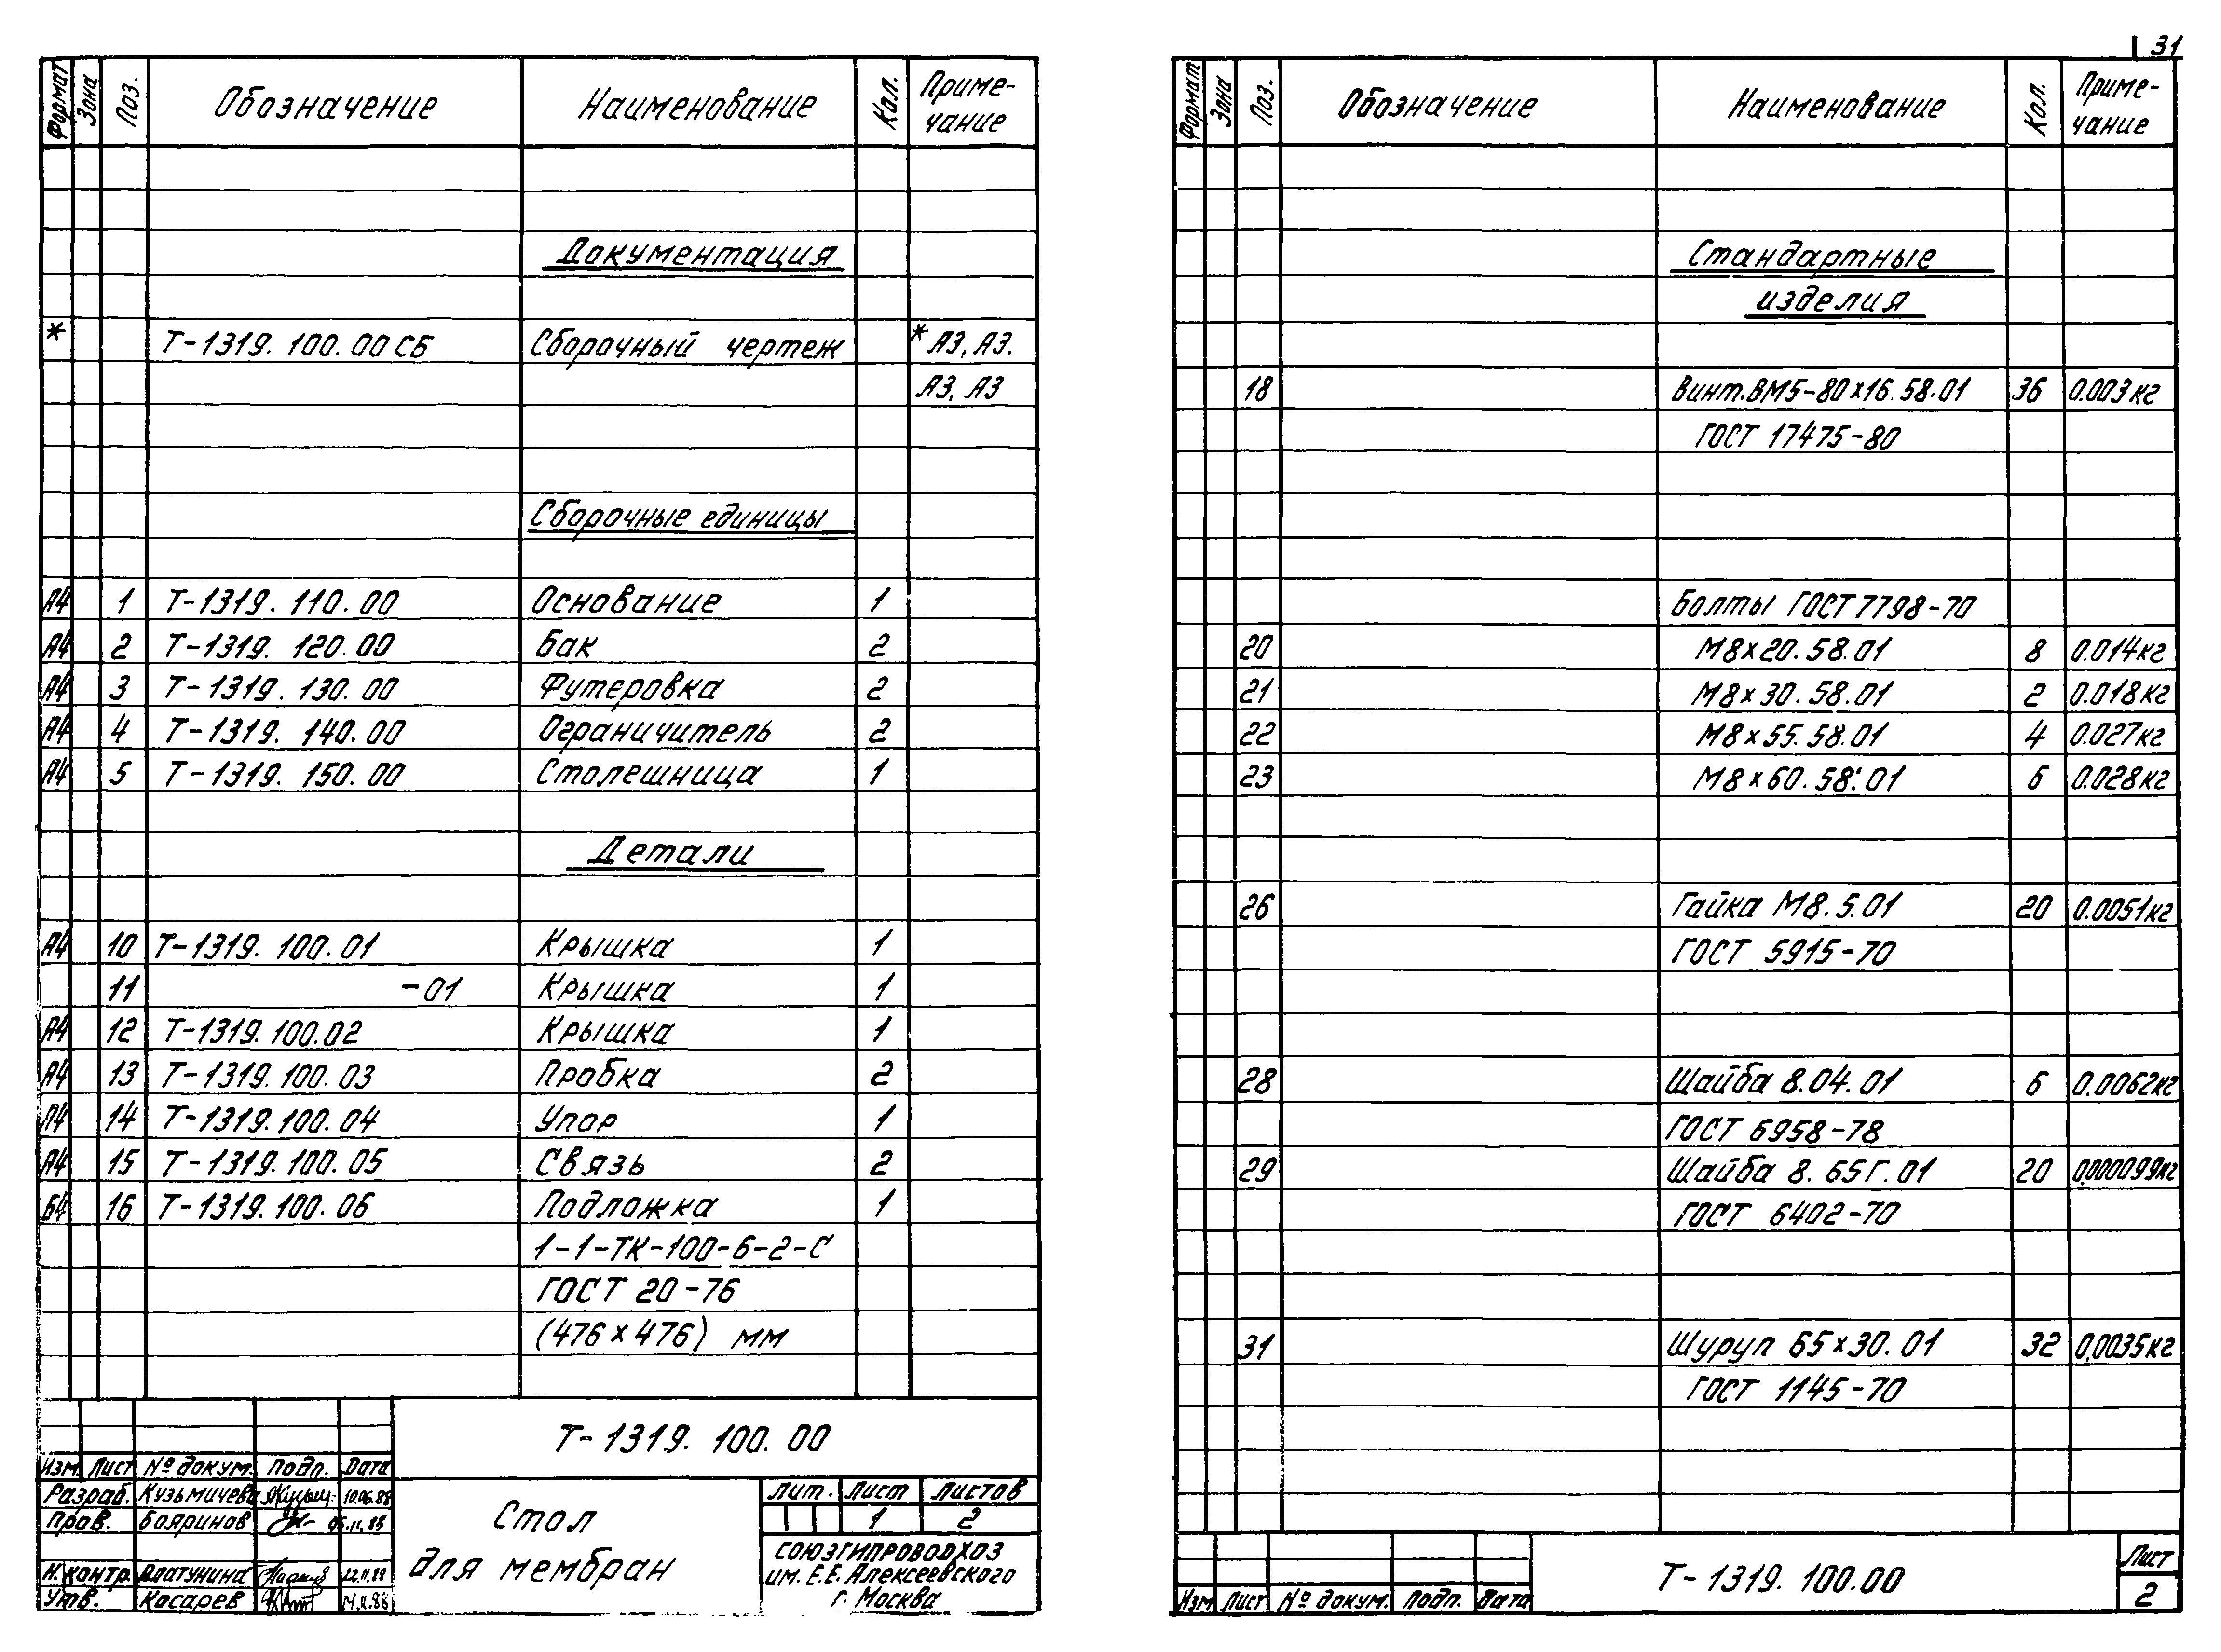 Формат Зона Поз. Обозначение Наименование Кол. Приме-
чание
Документация
* Т-1319. 100. 00 СБ Сборочный чертеж * А3, А3.
А3, А3
Сборочные единицы
А4 1 Т-1319. 110. 00 Основание 1
А4 2 Т-1319. 120. 00 Бак 2
А4 3 Т-1319. 130. 00 Футеровка 2
А4 4 Т-1319. 140. 00 Ограничитель 2
А4 5 Т-1319. 150. 00 Столешница 1
Детали
А4 10 Т-1319. 100. 01 Крышка 1
11 -01 Крышка 1
А4 12 Т-1319. 100. 02 Крышка 1
А4 13 Т-1319. 100. 03 Пробка 2
А4 14 Т-1319. 100. 04 Упор 1
А4 15 Т-1319. 100. 05 Связь 2
Б4 16 Т-1319. 100. 06 Подложка 1
1-1-ТК-100-6-2-С
ГОСТ 20-76
(476 х 476) мм
Т-1319. 100. 00
Изм. Лист № докум. Подп. Дата
Разраб. Кузьмичева 10.06.88
Пров. Бояринов
Н. контр. Платунина 22.11.88
Утв. Косарев
Стол
для мембран
Лит. Лист Листов
1 2
СОЮЗГИПРОВОДХОЗ
им. Е.Е. Алексеевского
г. Москва
31
Формат Зона Поз. Обозначение Наименование Кол. Приме-
чание
Стандартные
изделия
18 Винт. ВМ5-80х16. 58. 01 36 0.003 кг
ГОСТ 17475-80
Болты ГОСТ 7798-70
20 М8х20. 58. 01 8 0.014 кг
21 М8х30. 58. 01 2 0.018 кг
22 М8х55. 58. 01 4 0.027 кг
23 М8х60. 58. 01 6 0.028 кг
26 Гайка М8. 5. 01 20 0.0051 кг
ГОСТ 5915-70
28 Шайба 8. 04. 01 6 0.0062 кг
ГОСТ 6958-78
29 Шайба 8. 65Г. 01 20 0,000099 кг
ГОСТ 6402-70
31 Шуруп 65х30. 01 32 0,0035 кг
ГОСТ 1145-70
Изм Лист № докум. Подп. Дата
Т-1319. 100. 00
Лист
2